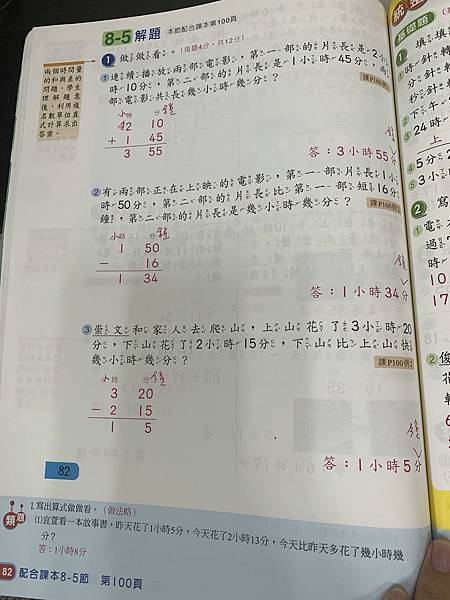 8-5 解題 本節配合課本第100頁
兩個時間量
的和與差的
問題，學生
理解題意
後，利用複
名數單位直
式計算求出
答案。
1 做做看。(每題4分，共12分)
① 連續播放兩部電影，第一部的片長是2小
時10分，第二部的片長是1小時45分，兩
部電影共長幾小時幾分？
課P100例1
小時 分鐘
2 10
+ 1 45
3 55
鐘
答：3小時55分
② 有兩部正在上映的電影，第一部片長1小
時50分，第二部的片長比第一部短16分
鐘，第二部的片長是幾小時幾分？
小時 分鐘
1 50
− 16
1 34
鐘
答：1小時34分
③ 崇文和家人去爬山，上山花了3小時20
分，下山花了2小時15分，下山比上山快
幾小時幾分？
課P100例2
小時 分鐘
3 20
− 2 15
1 5
鐘
答：1小時5分
82
類題
1.寫出算式做做看。(做法略)
(1)宜萱看一本故事書，昨天花了1小時5分，今天花了2小時13分，今天比昨天多花了幾小時幾
分？
答：1小時8分
82 配合課本8-5節 第100頁
統
基礎題
1 填
① 時
分針
秒針
② 下午
③ 24時
上
④ 5分2
⑤ 3小
2 寫
① 電
過
時
10
17
② 俊